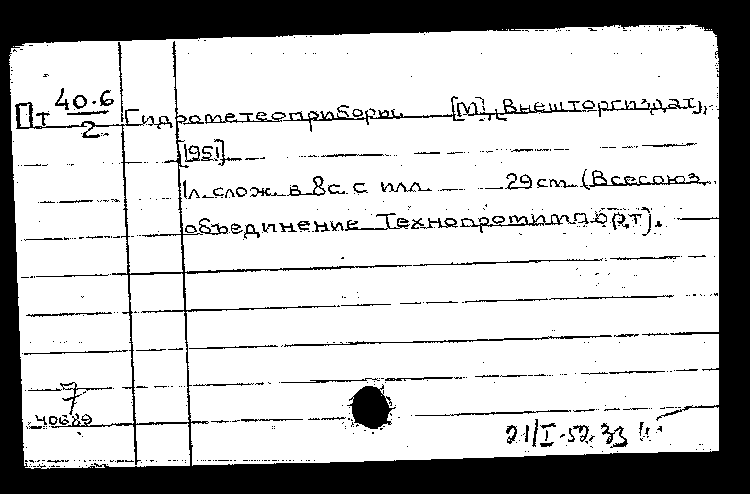 Пт 40.6/2 Гидрометеоприборы. [М], [Внешторгиздат],
[1951]
1л. слож. в 8с. с илл. 29 cm. (Всесоюз.
объединение Технопромимпорт).
7
40689
21/I-52. 33